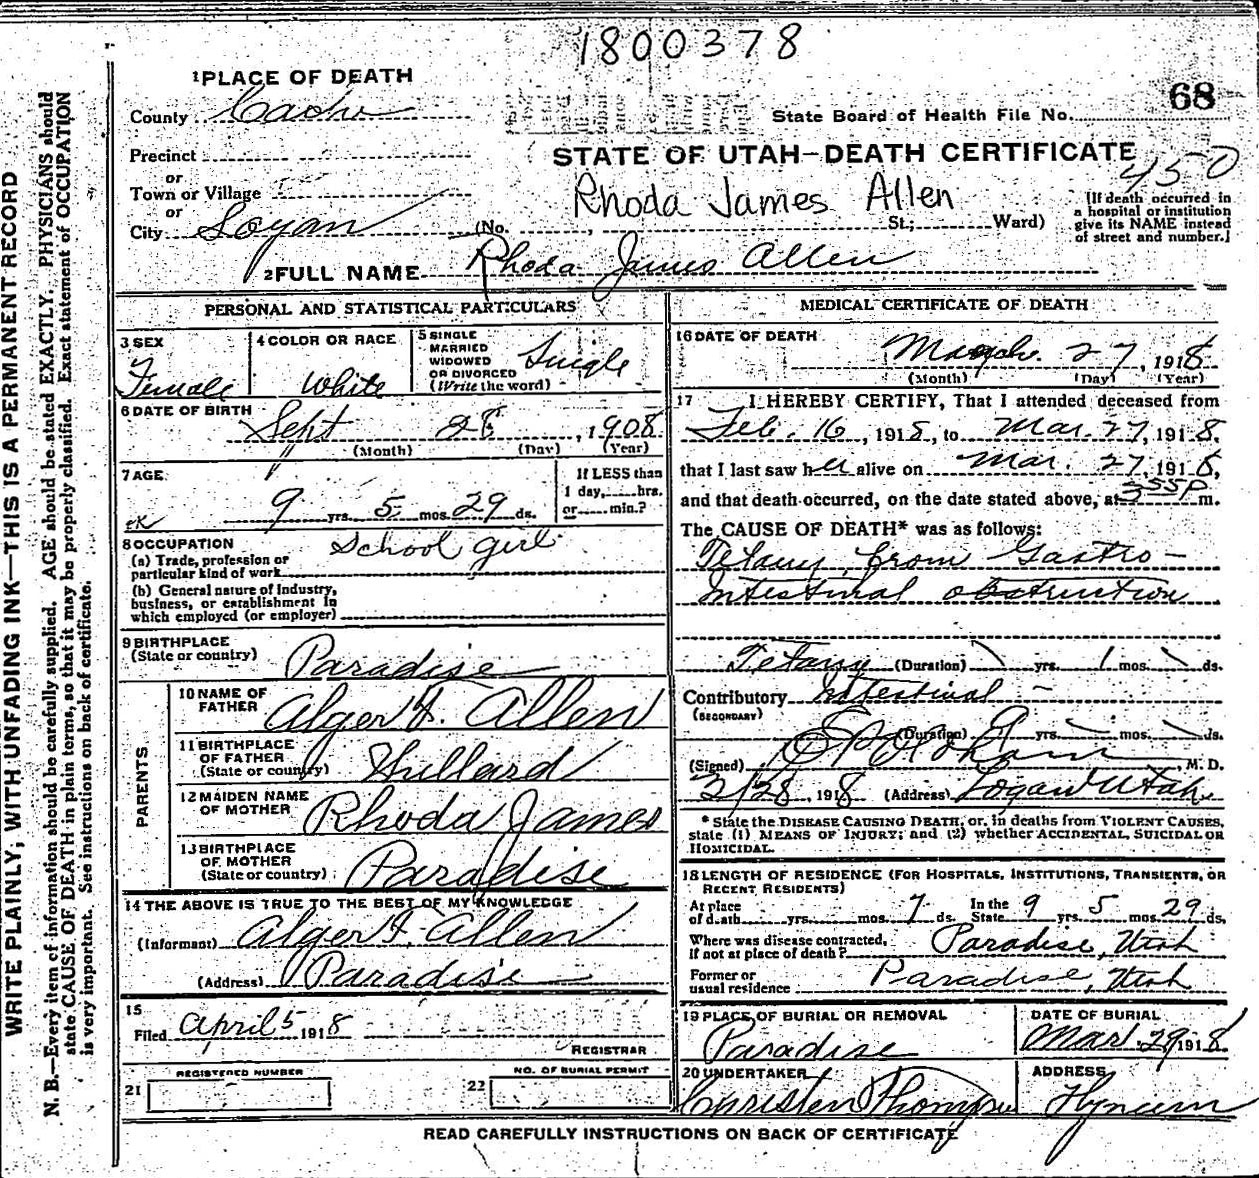 1800378
68
1 PLACE OF DEATH
County Cache
State Board of Health File No.
Precinct
STATE OF UTAH—DEATH CERTIFICATE
450
or
Town or Village
Rhoda James Allen
or
City Logan (No. , St.; Ward)
(If death occurred in
a hospital or institution
give its NAME instead
of street and number.)
2 FULL NAME Rhoda James Allen
WRITE PLAINLY, WITH UNFADING INK—THIS IS A PERMANENT RECORD
N. B.—Every item of information should be carefully supplied. AGE should be stated EXACTLY. PHYSICIANS should
state CAUSE OF DEATH in plain terms, so that it may be properly classified. Exact statement of OCCUPATION
is very important. See instructions on back of certificate.
PERSONAL AND STATISTICAL PARTICULARS
3 SEX
Female
4 COLOR OR RACE
White
5 SINGLE
MARRIED
WIDOWED
OR DIVORCED
(Write the word)
Single
6 DATE OF BIRTH
Sept 28, 1908
(Month) (Day) (Year)
7 AGE
9 yrs. 5 mos. 29 ds.
If LESS than
1 day, hrs.
or min.?
8 OCCUPATION School girl
(a) Trade, profession or
particular kind of work
(b) General nature of industry,
business, or establishment in
which employed (or employer)
9 BIRTHPLACE
(State or country) Paradise
PARENTS
10 NAME OF
FATHER Alger F. Allen
11 BIRTHPLACE
OF FATHER
(State or country)
12 MAIDEN NAME
OF MOTHER Rhoda James
13 BIRTHPLACE
OF MOTHER
(State or country) Paradise
14 THE ABOVE IS TRUE TO THE BEST OF MY KNOWLEDGE
(Informant) Alger F. Allen
(Address) Paradise
15
Filed April 5 1918
REGISTRAR
21 REGISTERED NUMBER
22 NO. OF BURIAL PERMIT
MEDICAL CERTIFICATE OF DEATH
16 DATE OF DEATH
March 27, 1918
(Month) (Day) (Year)
17 I HEREBY CERTIFY, That I attended deceased from
Feb. 16, 1918, to Mar. 27, 1918,
that I last saw her alive on Mar. 27, 1918,
and that death occurred, on the date stated above, at 355P m.
The CAUSE OF DEATH* was as follows:
Tetany from Gastro-
Intestinal obstruction
Tetany (Duration) yrs. 1 mos. ds.
Contributory Intestinal -
(SECONDARY)
(Duration) 9 yrs. mos. ds.
(Signed) M. D.
3/28, 1918 (Address) Logan Utah
* State the DISEASE CAUSING DEATH, or, in deaths from VIOLENT CAUSES,
state (1) MEANS OF INJURY; and (2) whether ACCIDENTAL, SUICIDAL OR
HOMICIDAL.
18 LENGTH OF RESIDENCE (FOR HOSPITALS, INSTITUTIONS, TRANSIENTS, OR
RECENT RESIDENTS)
At place
of death yrs. mos. 7 ds.
In the
State 9 yrs. 5 mos. 29 ds.
Where was disease contracted,
If not at place of death? Paradise, Utah
Former or
usual residence Paradise, Utah
19 PLACE OF BURIAL OR REMOVAL
Paradise
DATE OF BURIAL
Mar. 29, 1918
20 UNDERTAKER
Christen
ADDRESS
Hyrum
READ CAREFULLY INSTRUCTIONS ON BACK OF CERTIFICATE